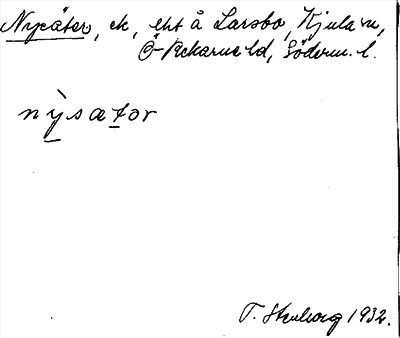 Nysäter, ck, ekt å Larsbo, Kjula sn,
Ö-Rekarne hd, Söderm. l.
nỳsætor
T. Stenborg 1932.